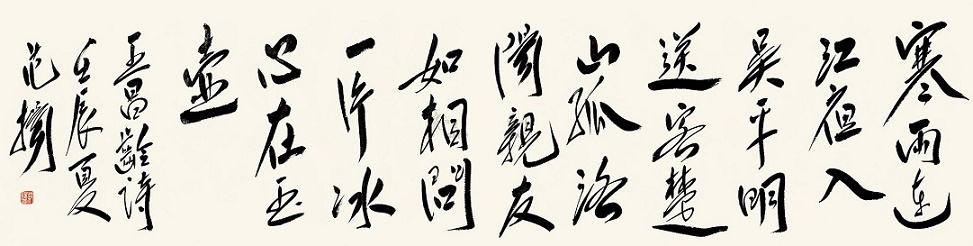 寒雨連
江夜入
吳平明
送客楚
山孤洛
陽親友
如相問
一片冰
心在玉
壺
王昌齡詩
壬辰夏
范揚